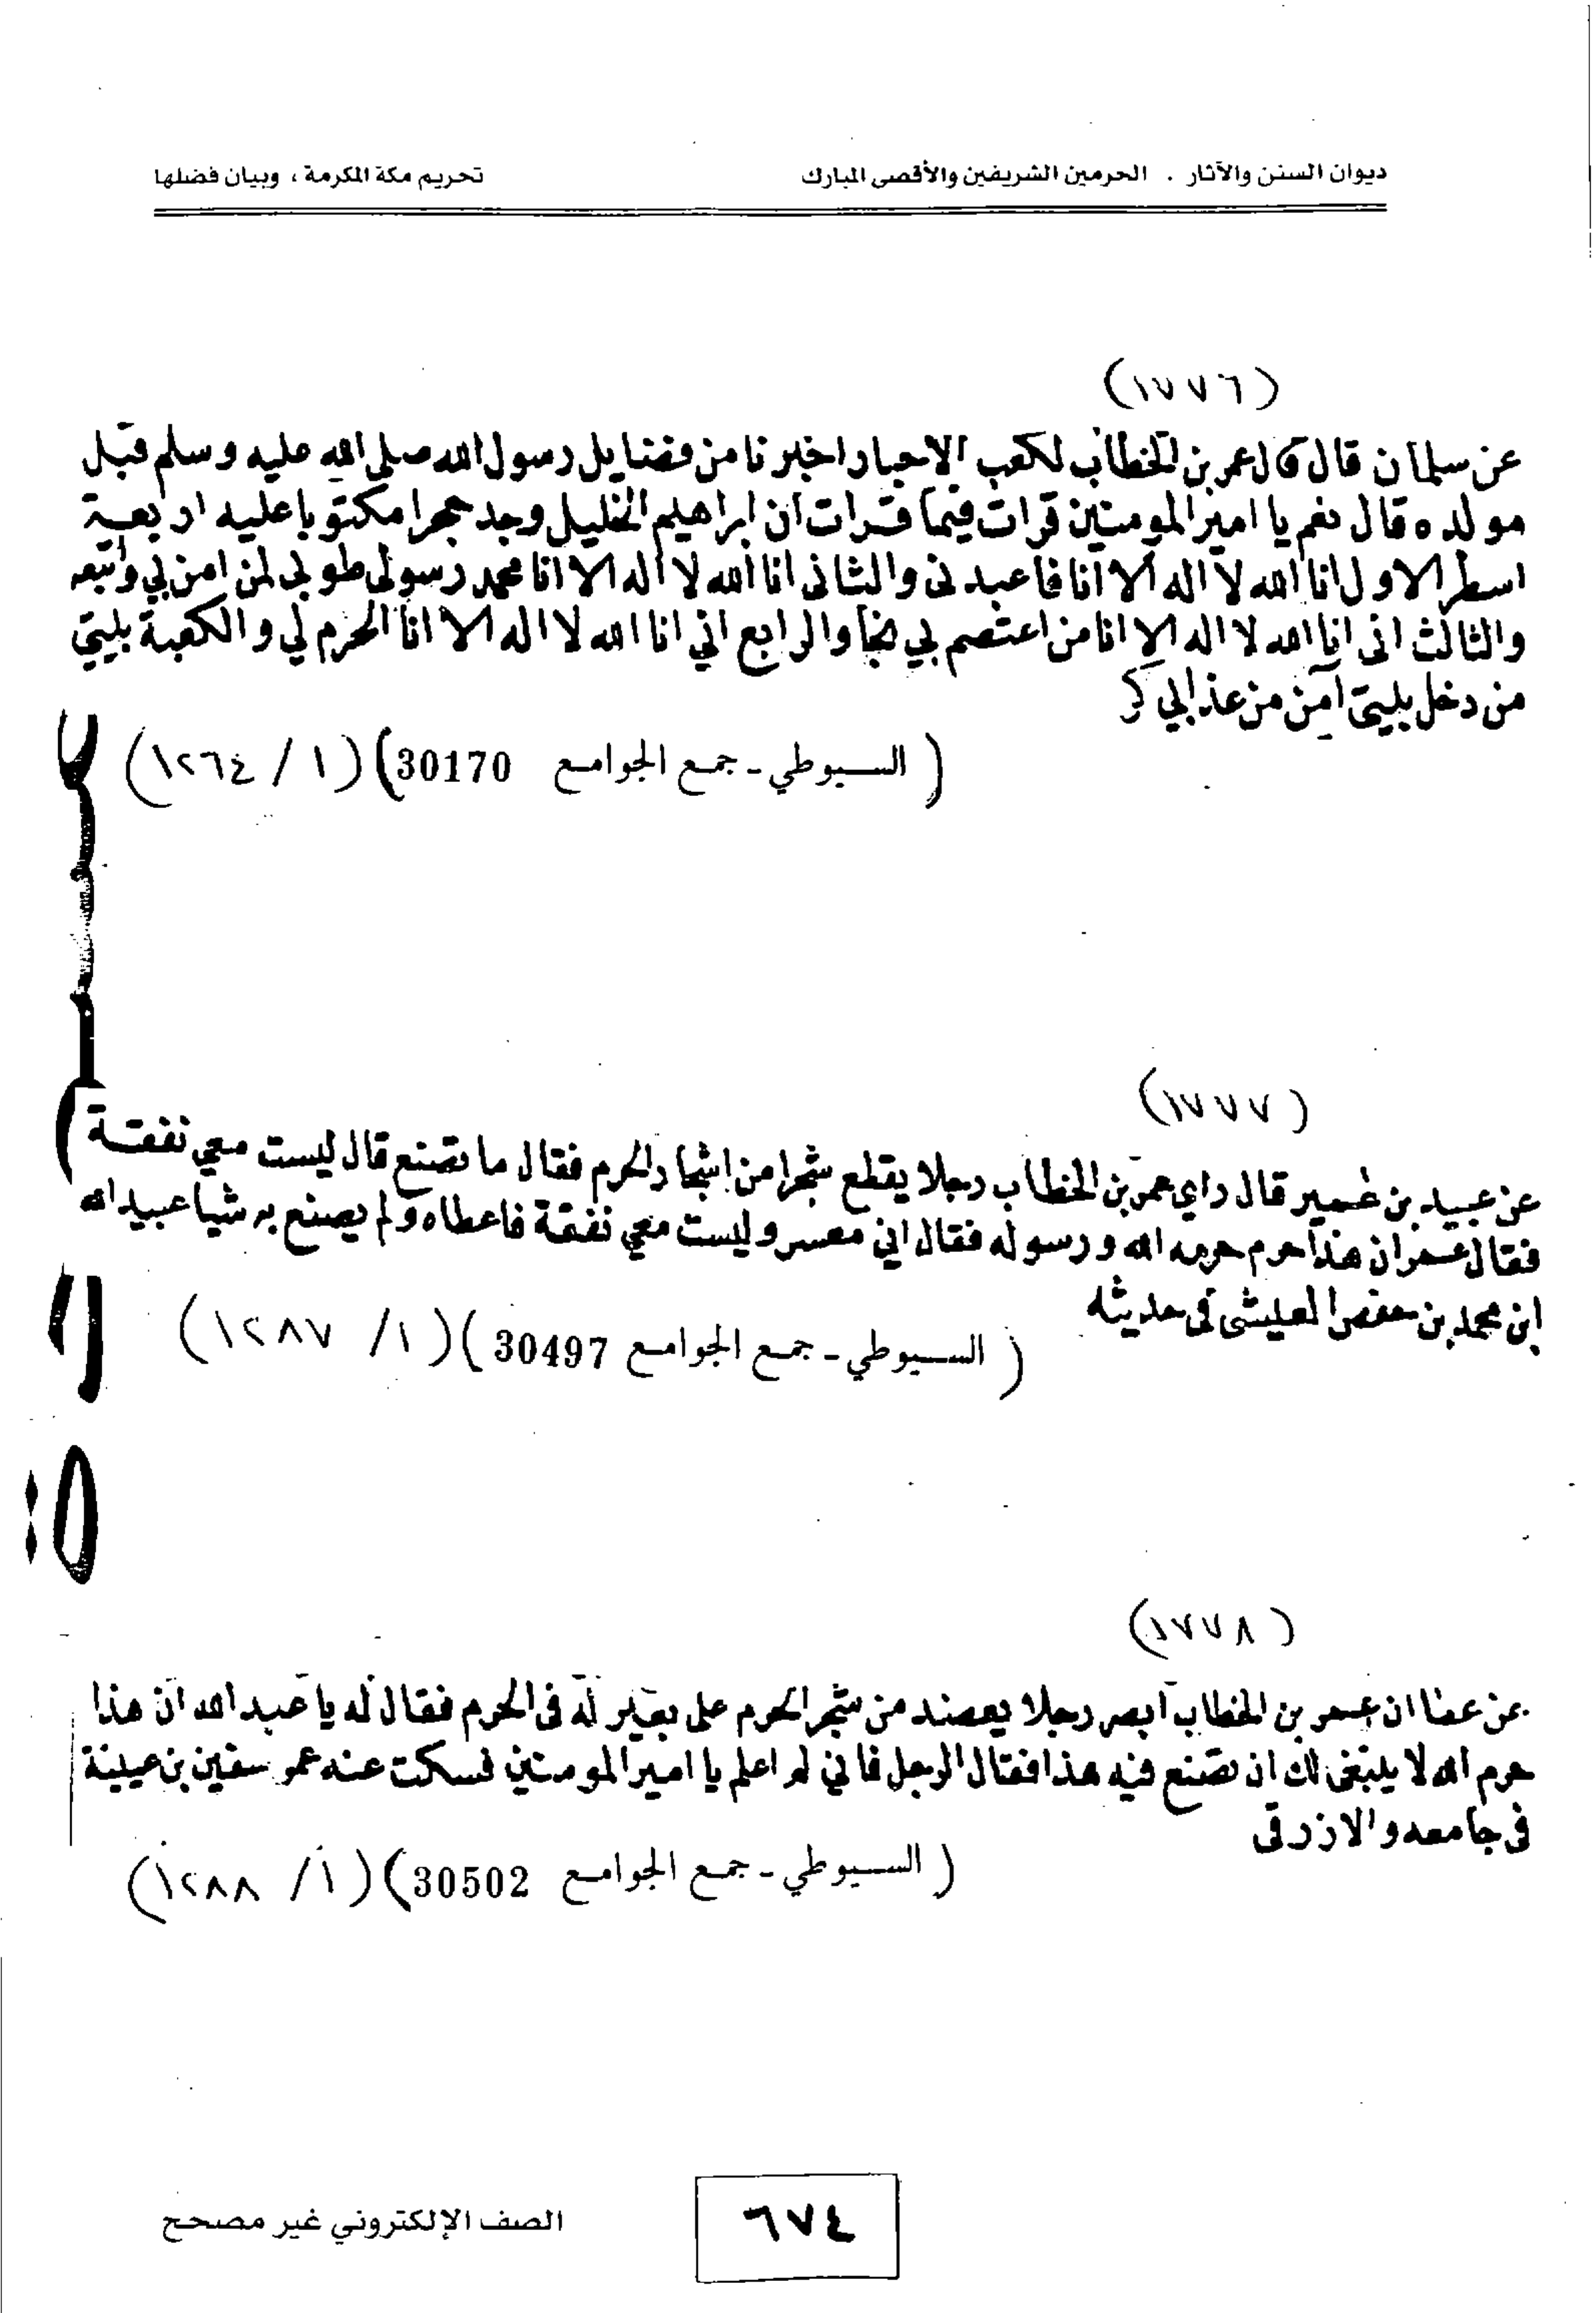 ديوان السنن والآثار . الحرمين الشريفين والأقصى المبارك
تحريم مكة المكرمة ، وبيان فضلها
(١٧٧٦)
عن سلمان قال قال عمر بن الخطاب لكعب الاحبار اخبرنا من فضايل رسول الله صلى الله عليه وسلم قبل
مولده قال نعم يا امير المومنين قرات فيما قرات ان ابراهيم الخليل وجد حجرا مكتوبا عليه اربعة
اسطر الاول انا الله لا اله الا انا فاعبدنى والثانى انا الله لا اله الا انا محمد رسولى طوبى لمن امن بي واتبعه
والثالث انى انا الله لا اله الا انا من اعتصم بي نجا والرابع اني انا الله لا اله الا انا الحرم لي والكعبة بيتي
من دخل بيتى آمن من عذابي كر
( السيوطي - جمع الجوامع 30170) (١ / ١٢٦٤)
(١٧٧٧)
عن عبيد بن عمير قال راي عمر بن الخطاب رجلا يقطع شجرا من اشجار الحرم فقال ما تصنع قال ليست معي نفقة
فقال عمر ان هذا حرم حرمه الله ورسوله فقال اني معسر وليست معي نفقة فاعطاه ولم يصنع به شيا عبيد الله
ابن محمد بن حفص العيشى فى حديثه
( السيوطي - جمع الجوامع 30497) (١ / ١٢٨٧)
(١٧٧٨)
عن عطا ان عمر بن الخطاب ابصر رجلا يعضد من شجر الحرم على بعير له فى الحرم فقال له يا عبد الله ان هذا
حرم الله لا ينبغى لك ان تصنع فيه هذا فقال الرجل فاني لم اعلم يا امير المومنين فسكت عنه عمر سفين بن عيينة
فى جامعه والازرقى
( السيوطي - جمع الجوامع 30502) (١ / ١٢٨٨)
٦٧٤
الصف الإلكتروني غير مصحح